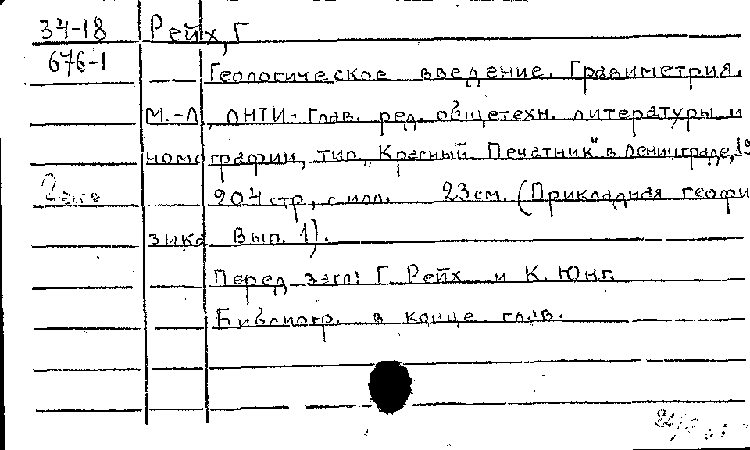 34-18 Рейх, Г
676-1
Геологическое введение. Гравиметрия.
М.-Л, ОНТИ-Глав. ред. общетехн. литературы и
номографии, тип. „Красный Печатник" в Ленинграде, 19
2 экз 204 стр., с илл. 23 см. (Прикладная геофи
зика Вып. 1).
Перед загл: Г. Рейх и К. Юнг.
Библиогр. в конце глав.